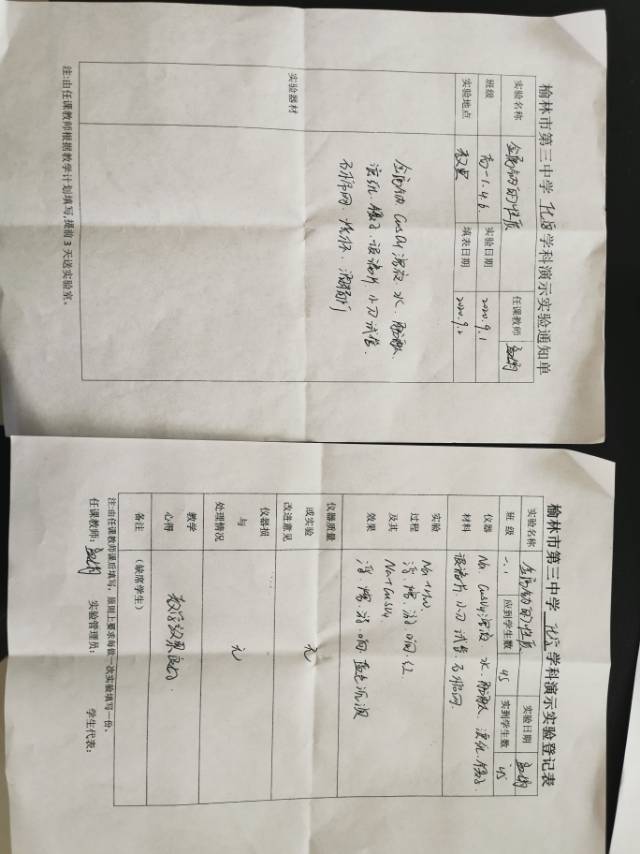 榆林市第三中学 化学 学科演示实验通知单
实验名称 金属钠的性质 任课教师
班级 高一1.4.6. 实验日期 2020.9.1
实验地点 教室 填表日期 2020.9.2
实验器材
金属钠. CuSO4溶液. 水. 酚酞.
滤纸. 镊子. 玻璃片. 小刀. 试管.
石棉网.
注:由任课教师根据教学计划填写,提前3天送实验室。
榆林市第三中学 化学 学科演示实验登记表
实验名称 金属钠的性质 实验日期
班级 一.1 应到学生数 45 实到学生数 45
仪器材料 Na. CuSO4溶液. 水. 酚酞. 滤纸. 镊子.
玻璃片. 小刀. 试管. 石棉网.
实验过程及其效果
Na+H2O.
浮.熔.游.响.红
Na+CuSO4
浮.熔.游.响.蓝色沉淀
仪器质量或实验改进意见 无
仪器损与处理情况 无
教学心得 教学效果良好.
备注 (缺席学生)
注:由任课教师课后填写,原则上要求每做一次实验填写一份。
任课教师: 实验管理员: 学生代表: